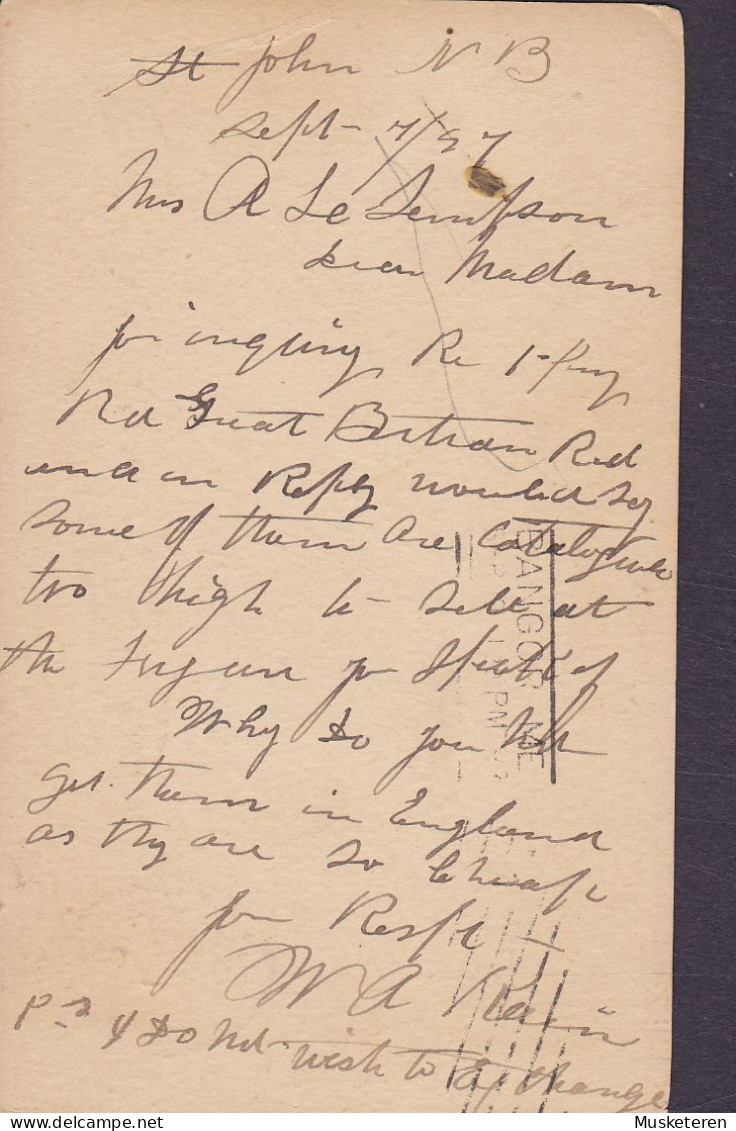 St John N B
Sept - 7/97
Mrs A Le Simpson
Dear Madam
for inquiry Re 1-Peny
Red Great Britian Red
and in Reply would say
some of them are catalogued
too high to sell at
the Figure you Speak of
Why Do you Not
get them in England
as thy are so Cheap
you Respt
W A
P-S I Do Not wish to Exchange
BANGOR ME
PM
Musketeren